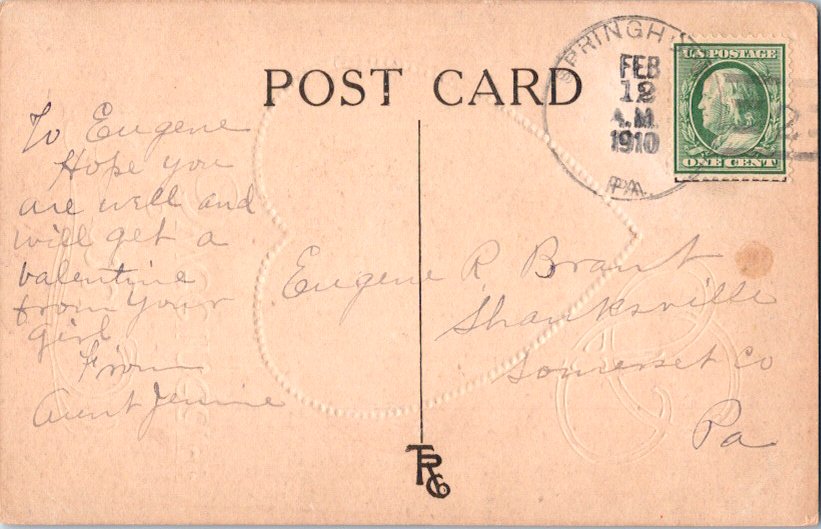 POST CARD
FEB
12
A.M.
1910
PA.
U.S. POSTAGE
ONE CENT
To Eugene
Hope you
are well and
will get a
valentine
from your
girl
From
Aunt Jennie
Eugene R Brant
Shanksville
Somerset Co
Pa
TRCo